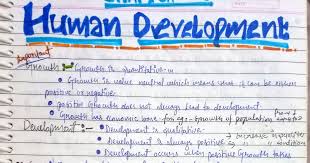 Human Development
Important
Growth :- Growth is quantitative
• Growth is value neutral which means that it can be either
positive or negative
• positive Growth does not always lead to development.
• Growth has economic base for eg:- Growth of population
Development :- • Development is qualitative
• Development is always
• Development occurs when positive Growth takes